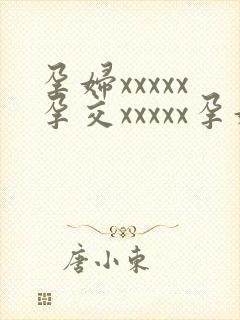 孕妇xxxxx
孕交xxxxx孕
唐小东